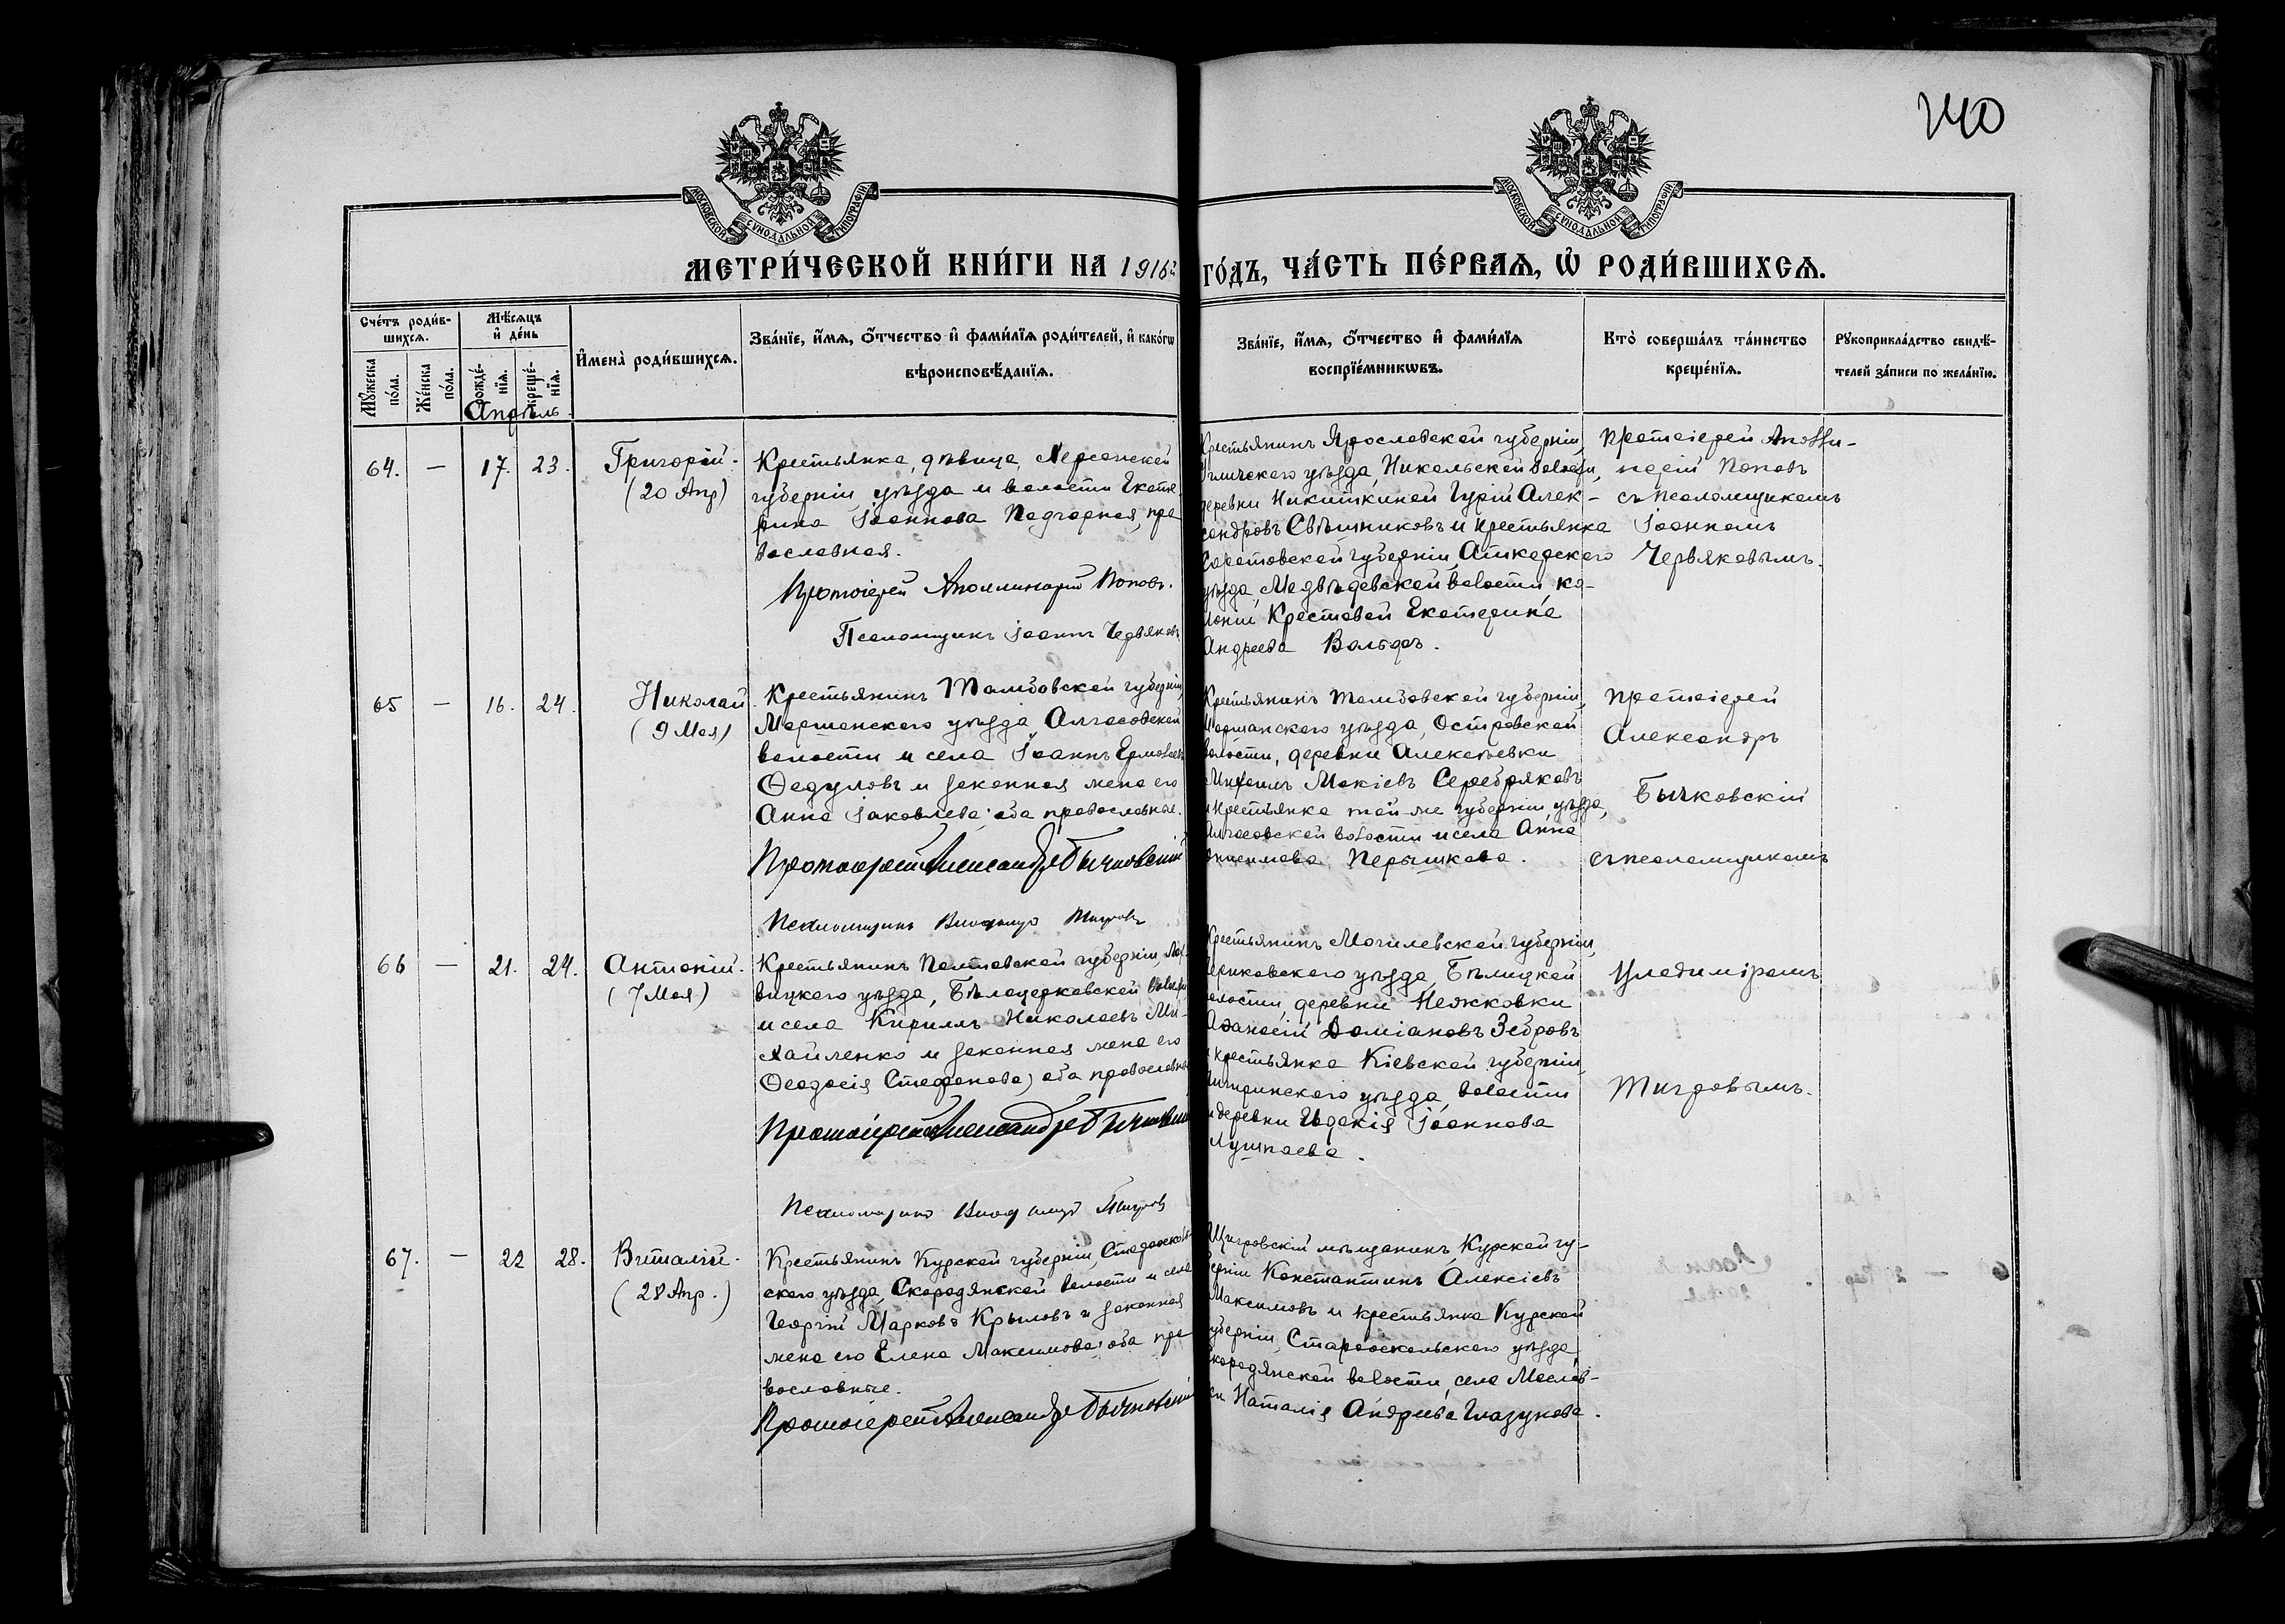 240
МОСКОВСКОЙ СѴНОДАЛЬНОЙ ТИПОГРАФІИ
МОСКОВСКОЙ СѴНОДАЛЬНОЙ ТИПОГРАФІИ
МЕТРИ́ЧЕСКОЙ КНИ́ГИ НА 1916 ГО́ДЪ, ЧА́СТЬ ПЕ́РВАѦ, Ѡ҆ РОДИ́ВШИХСѦ.
Сче́тъ роди́в-
шихсѧ.
Мꙋ́жеска по́ла.
Же́нска по́ла.
Мѣ́сѧцъ и҆ де́нь
рожде́-нїѧ.
креще́-нїѧ.
И҆мена̀ роди́вшихсѧ.
Зва́нїе, и҆́мѧ, ѻ҆́тчество и҆ фами́лїѧ роди́телей, и҆ како́гѡ
вѣроисповѣ́данїѧ.
Зва́нїе, и҆́мѧ, ѻ҆́тчество и҆ фами́лїѧ
воспрїе́мникѡвъ.
Кто̀ соверша́лъ та́инство
креще́нїѧ.
Рꙋкоприкла́дство свидѣ́-
телей за́писи по жела́нїю.
Апрѣль
64. — 17. 23. Григорій.
(20 Апр)
Крестьянка, дѣвица, Херсонской
губерніи, уѣзда и волости Екате-
рина Іоаннова Подгорная, пра
вославная.
Протоіерей Аполлинарій Поповъ.
Псаломщикъ Іоаннъ Червяковъ
Крестьянинъ Ярославской губерніи,
Угличскаго уѣзда, Никольской волости,
деревни Никиткиной Гурій Алек-
сандровъ Свѣшниковъ и крестьянка
Саратовской губерніи, Аткарскаго
уѣзда, Медвѣдевской волости ко-
лоніи Крестовой Екатерина
Андреева Вольфъ.
Протоіерей Аполли-
нарій Поповъ
съ псаломщикомъ
Іоанномъ
Червяковымъ.
65 — 16. 24. Николай.
(9 Мая)
Крестьянинъ Тамбовской губерніи,
Моршанскаго уѣзда, Алгасовской
волости и села Іоаннъ Ермолаевъ
Ѳедуловъ и законная жена его
Анна Іаковлева; оба православные.
Протоіерей Александръ Бычковскій
Псаломщикъ Владиміръ Тигровъ
Крестьянинъ Тамбовской губерніи,
Моршанскаго уѣзда, Островской
волости, деревни Алексѣевки
Михаилъ Мокіевъ Серебряковъ
и крестьянка той-же губерніи уѣзда,
Алгасовской волости и села Анна
Онисимова Перышкова.
Протоіерей
Александръ
Бычковскій
съ псаломщикомъ
66 — 21. 24. Антоній.
(7 Мая)
Крестьянинъ Полтавской губерніи, Лох-
вицкаго уѣзда, Бѣлоцерковской волости
и села Кириллъ Николаевъ Ми-
хайленко и законная жена его
Ѳеодосія Стефанова; оба православные
Протоіерей Александръ Бычковскій
Псаломщикъ Владиміръ Тигровъ
Крестьянинъ Могилевской губерніи,
Чериковскаго уѣзда, Бѣлицкой
волости, деревни Нежковки
Аѳанасій Даміановъ Зебровъ
и крестьянка Кіевской губерніи,
Чигиринскаго уѣзда, волости
и деревни Евдокія Іоаннова
Лушпаева.
Владиміромъ
Тигровымъ.
67. — 22 28. Виталій.
(28 Апр.)
Крестьянинъ Курской губерніи, Старооскольс-
скаго уѣзда, Скородянской волости и села
Георгій Марковъ Крыловъ и законная
жена его Елена Максимова; оба пра
вославные.
Протоіерей Александръ Бычковскій
Щигровскій мѣщанинъ, Курской гу-
берніи Константинъ Алексіевъ
Максимовъ и крестьянка Курской
губерніи, Старооскольскаго уѣзда
Скородянской волости, села Маслов-
ки Наталія Андреева Глазунова.